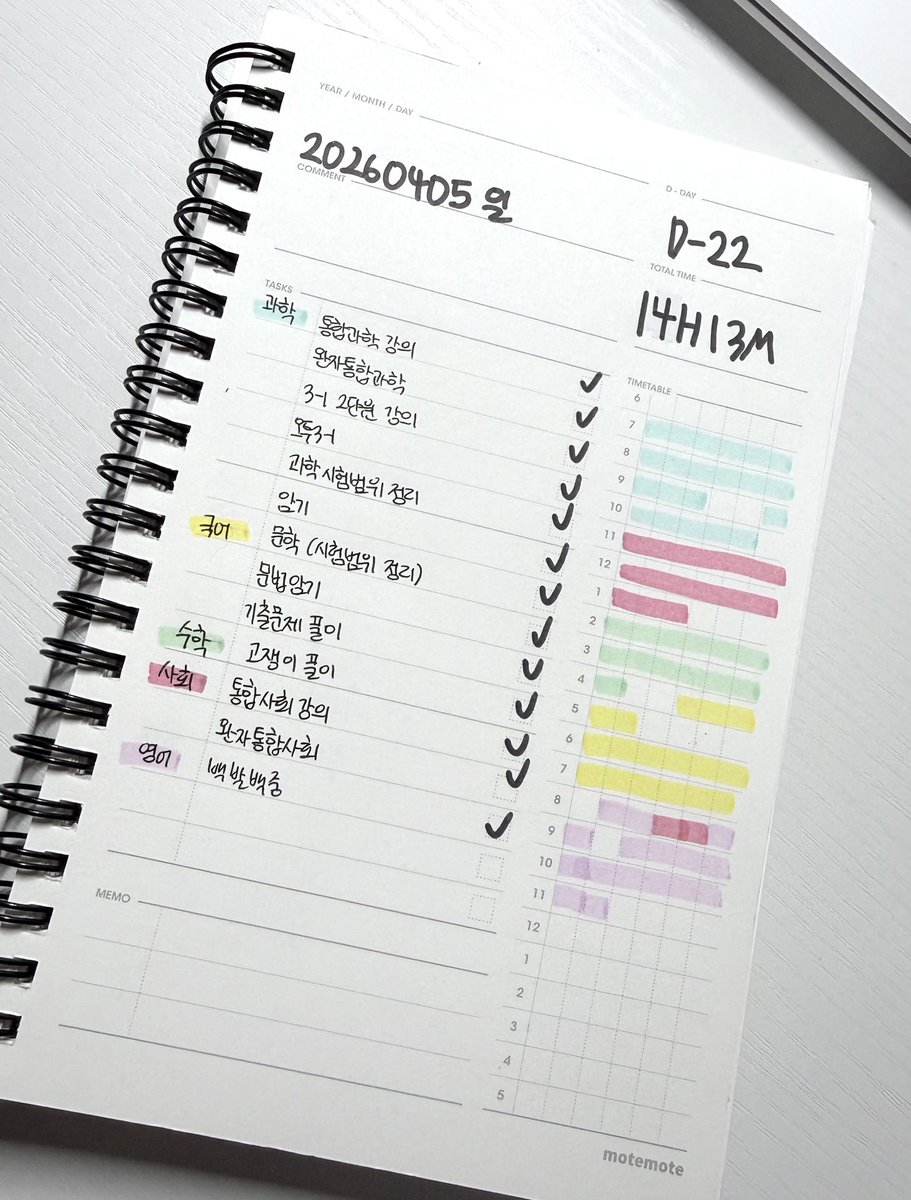 YEAR / MONTH / DAY
20260405 일
D - DAY
D-22
COMMENT
TOTAL TIME
14H13M
TASKS
과학 통합과학 강의
완자통합과학
3-1 2단원 강의
오투3-1
과학시험범위 정리
암기
국어 문학 (시험범위 정리)
문법암기
기출문제 풀이
수학 고쟁이 풀이
사회 통합사회 강의
완자통합사회
영어 백발백중
MEMO
TIMETABLE
6
7
8
9
10
11
12
1
2
3
4
5
6
7
8
9
10
11
12
1
2
3
4
5
motemote